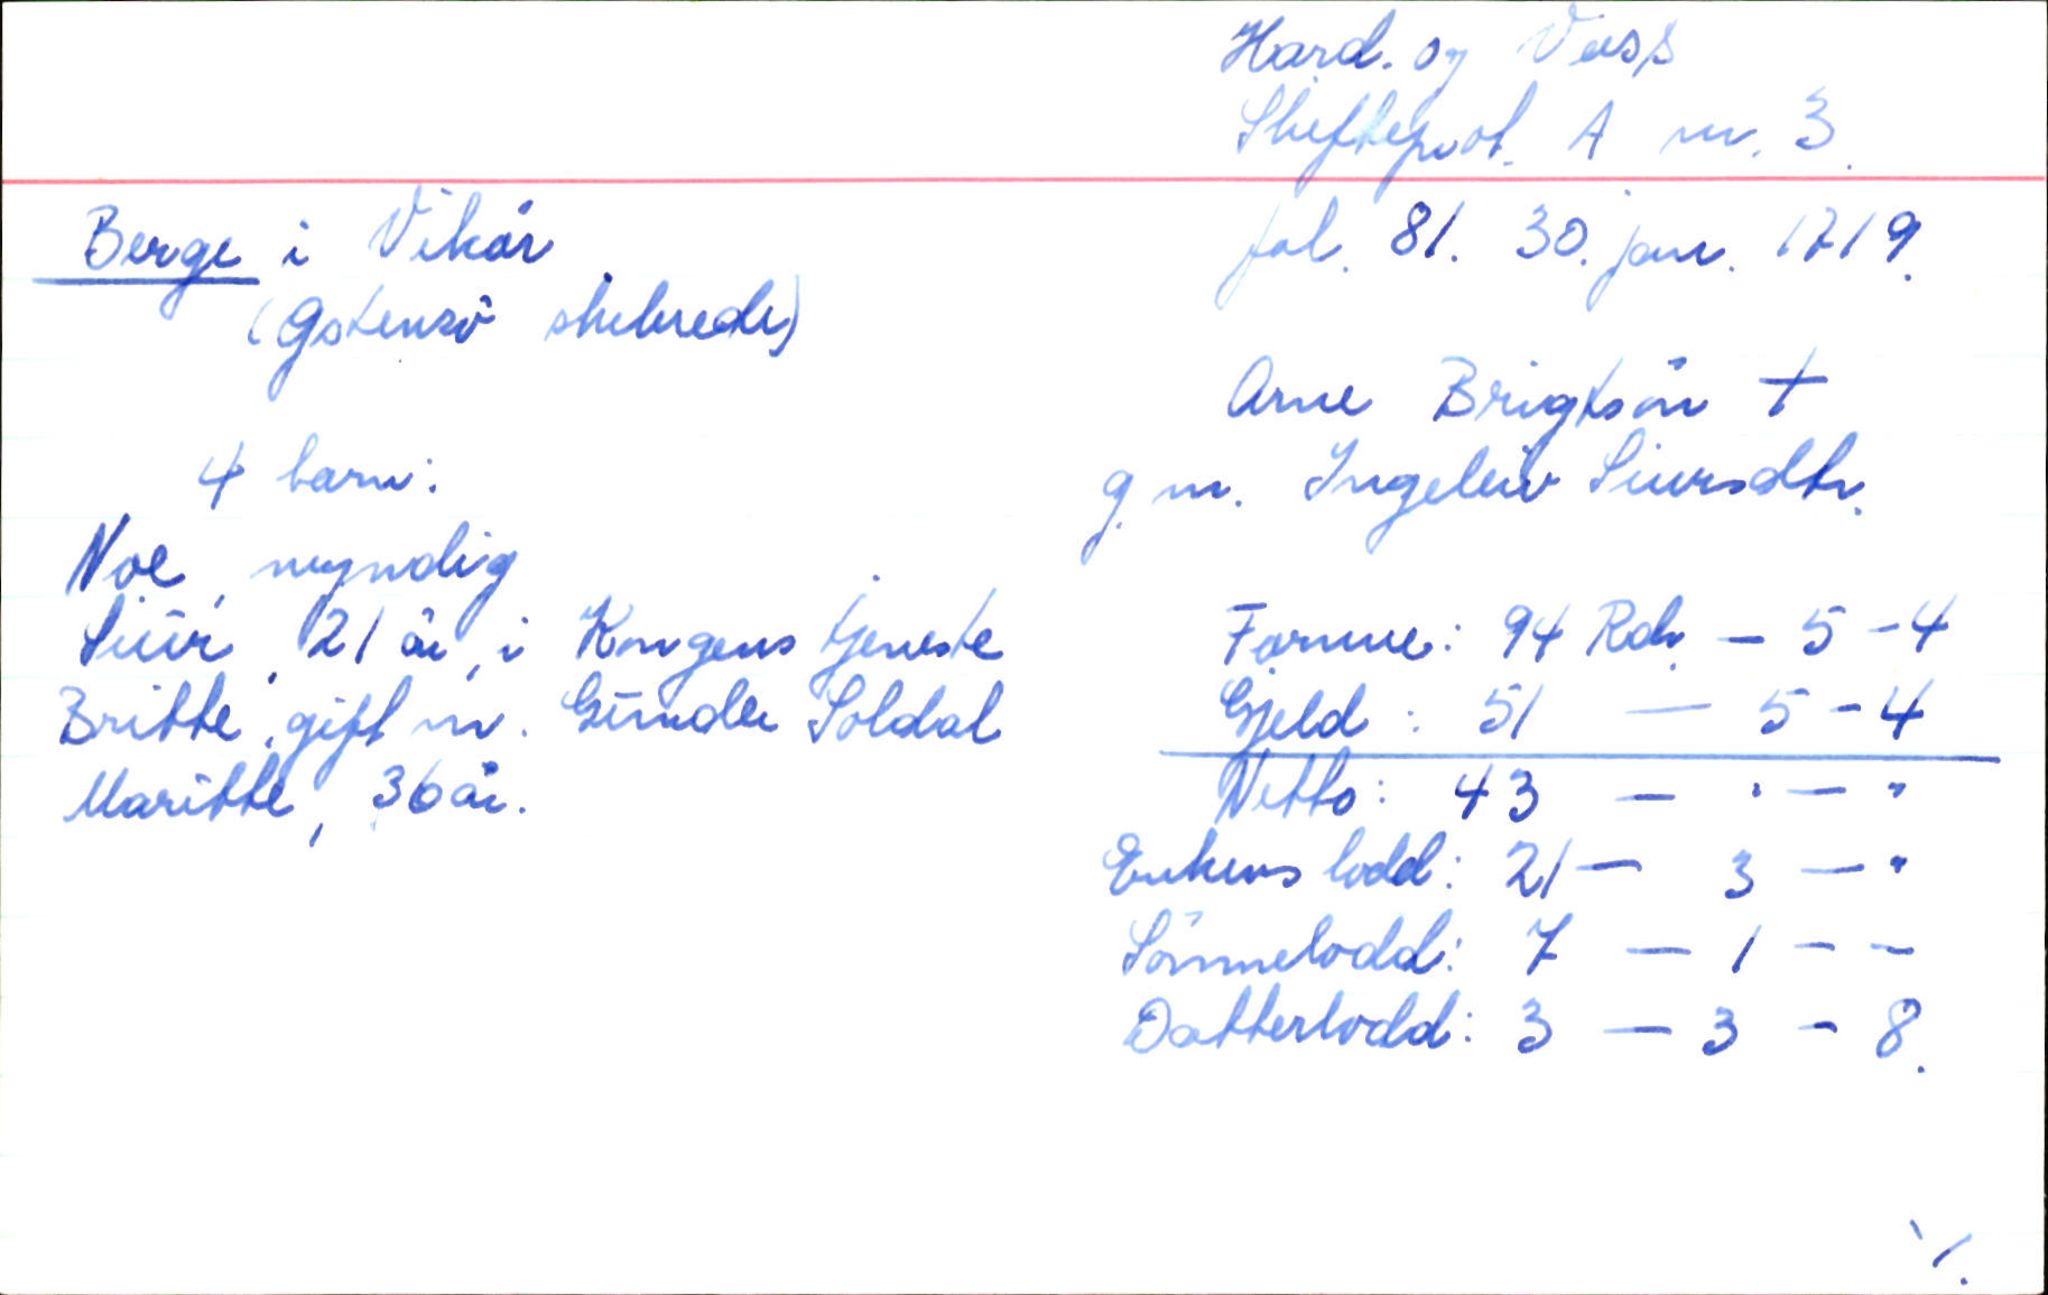 Hard. og Voss
Skifteprot. A nr. 3.
fol. 81. 30. jan. 1719.
Berge i Vikör
(Östensö skibrede)
Arne Brigtsön †
g. m. Ingeleiv Siursdtr.
4 barn:
Noe, myndig
Siur, 21 år, i Kongens tjeneste
Britte, gift m. Gunder Soldal
Maritte, 36 år.
Formue: 94 Rdr. - 5 - 4
Gjeld: 51 — 5 - 4
Netto: 43 — " — "
Enkens lodd: 21 — 3 — "
Sönnelodd: 7 — 1 - -
Datterlodd: 3 — 3 - 8.
./.